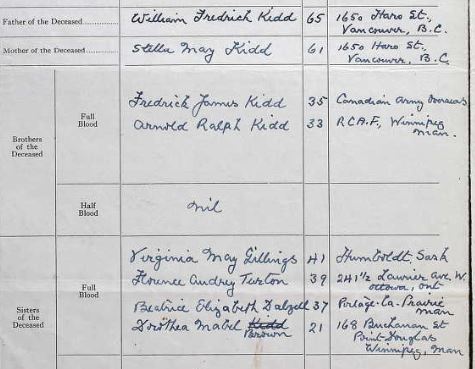 Father of the Deceased.......... William Fredrick Kidd 65 1650 Haro St.,
Vancouver, B.C.
Mother of the Deceased.......... Stella May Kidd 61 1650 Haro St.,
Vancouver, B.C.
Brothers of the Deceased
Full Blood
Fredrick James Kidd 35 Canadian Army Overseas
Arnold Ralph Kidd 33 R.C.A.F., Winnipeg
Man.
Half Blood
nil
Sisters of the Deceased
Full Blood
Virginia May Gillings 41 Humboldt, Sask
Florence Audrey Turton 39 241 1/2 Laurier ave. W.
Ottawa, Ont
Beatrice Elizabeth Dalzell 37 Portage-La-Prairie
Man
Dorothea Mabel Kidd 21 168 Buchanan St
Brown Point Douglas
Winnipeg, Man